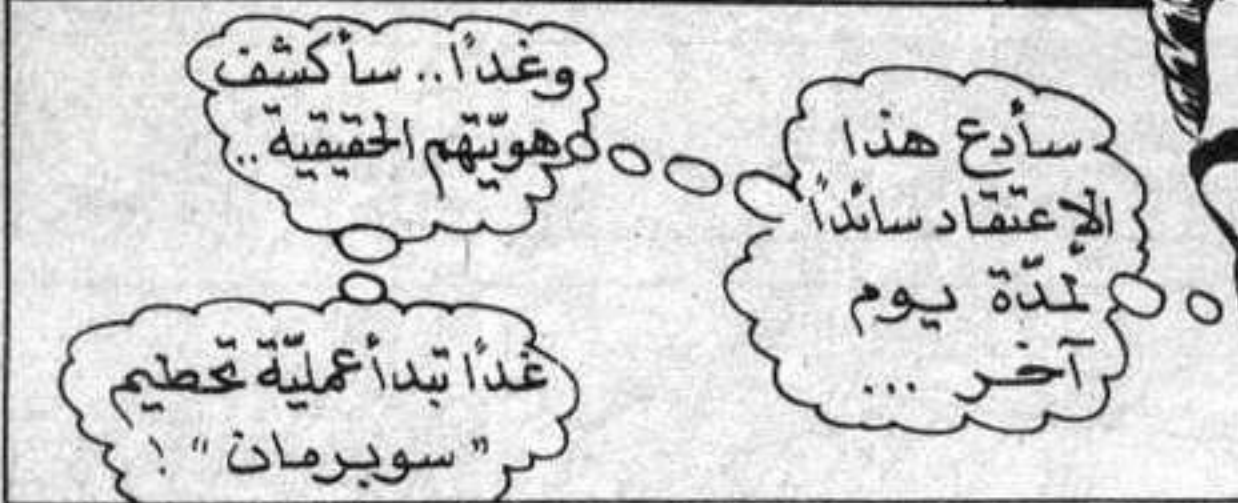 سأدع هذا
الإعتقاد سائداً
لمدّة يوم
آخر ...
وغداً.. سأكشف
هويّتهم الحقيقية..
غداً تبدأ عمليّة تحطيم
"سوبرمان"!